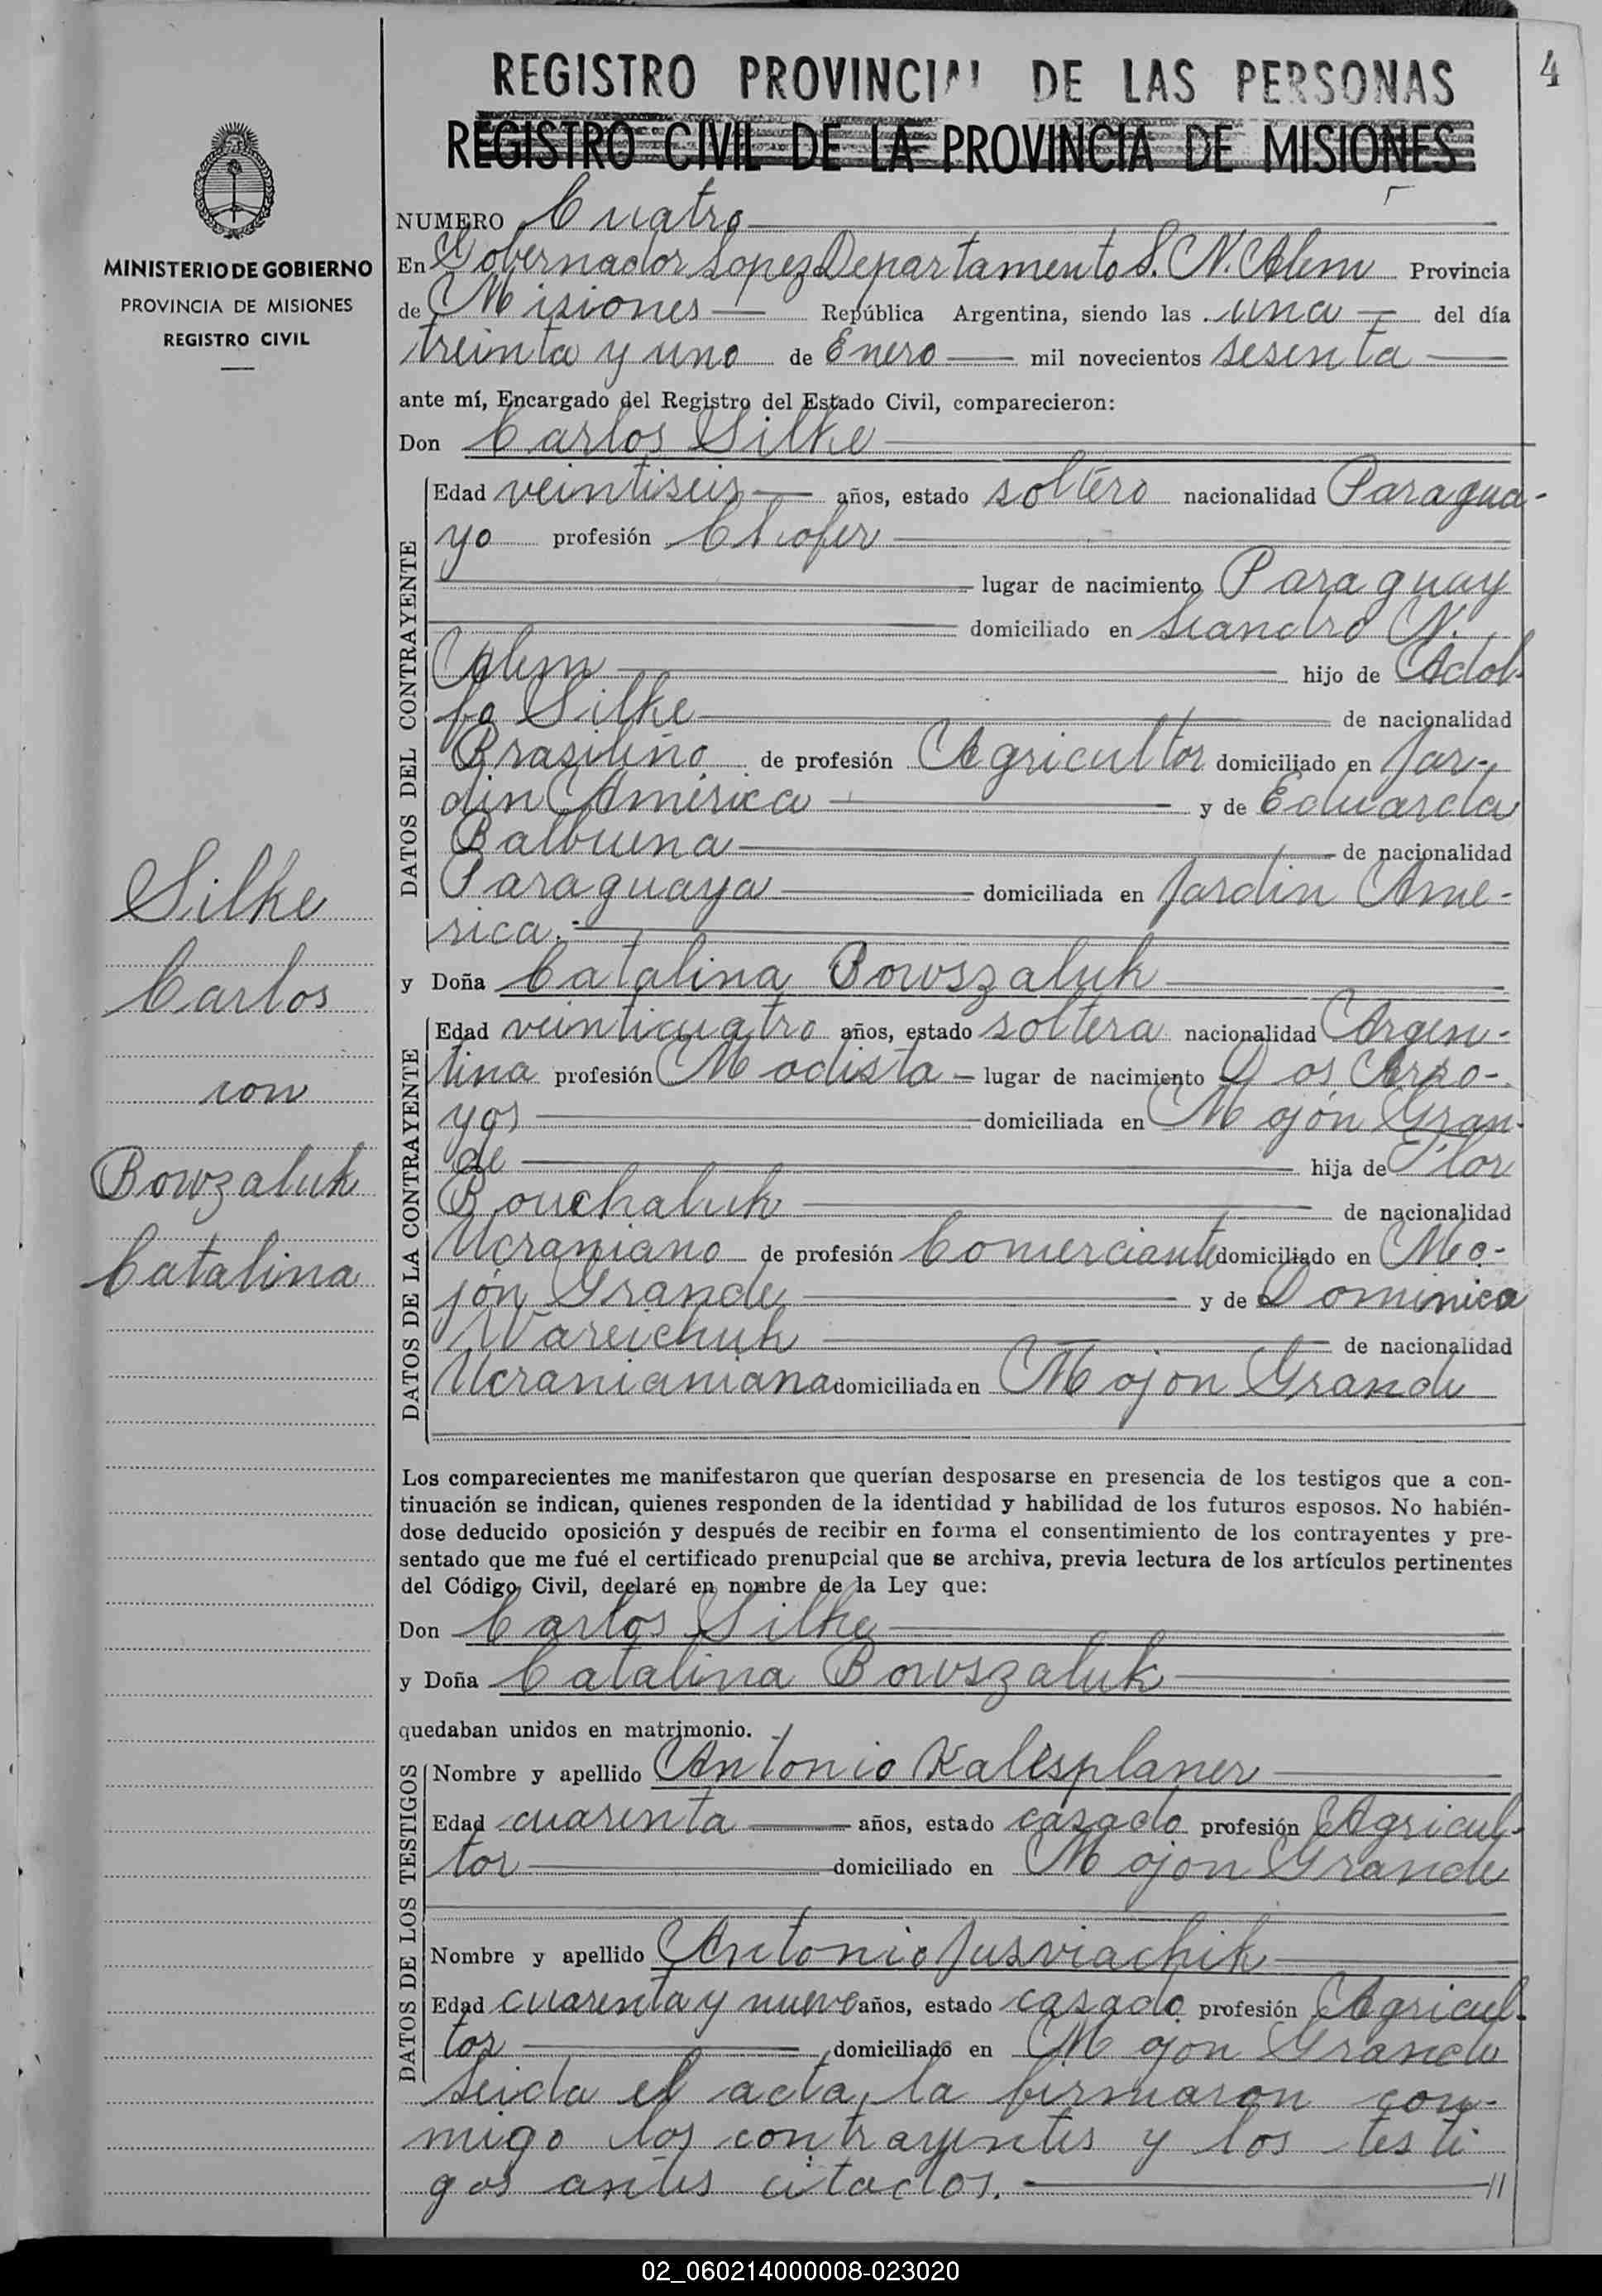 4
REGISTRO PROVINCIAL DE LAS PERSONAS
REGISTRO CIVIL DE LA PROVINCIA DE MISIONES
MINISTERIO DE GOBIERNO
PROVINCIA DE MISIONES
REGISTRO CIVIL
Silke
Carlos
con
Bowzaluk
Catalina
NUMERO Cuatro
En Gobernador Lopez Departamento L. N. Alem Provincia
de Misiones República Argentina, siendo las una del día
treinta y uno de Enero mil novecientos sesenta
ante mí, Encargado del Registro del Estado Civil, comparecieron:
Don Carlos Silke
DATOS DEL CONTRAYENTE
Edad veintiseis años, estado soltero nacionalidad Paragua-
yo profesión Chofer
lugar de nacimiento Paraguay
domiciliado en Leandro N.
Alem hijo de Adol-
fo Silke de nacionalidad
Brasileño de profesión Agricultor domiciliado en Jar-
din América y de Eduarda
Balbuena de nacionalidad
Paraguaya domiciliada en Jardin Ame-
rica.-
y Doña Catalina Bowszaluk
DATOS DE LA CONTRAYENTE
Edad veinticuatro años, estado soltera nacionalidad Argen-
tina profesión Modista lugar de nacimiento Dos Arro-
yos domiciliada en Mojón Gran-
de hija de Flor
Bouchaluk de nacionalidad
Ucraniano de profesión Comerciante domiciliado en Mo-
jón Grande y de Dominica
Wareichuk de nacionalidad
Ucranianiana domiciliada en Mojon Grande
Los comparecientes me manifestaron que querían desposarse en presencia de los testigos que a con-
tinuación se indican, quienes responden de la identidad y habilidad de los futuros esposos. No habién-
dose deducido oposición y después de recibir en forma el consentimiento de los contrayentes y pre-
sentado que me fué el certificado prenupcial que se archiva, previa lectura de los artículos pertinentes
del Código Civil, declaré en nombre de la Ley que:
Don Carlos Silke
y Doña Catalina Bowszaluk
quedaban unidos en matrimonio.
DATOS DE LOS TESTIGOS
Nombre y apellido Antonio Kalesplaner
Edad cuarenta años, estado casado profesión Agricul-
tor domiciliado en Mojon Grande
Nombre y apellido Antonio Jusviachik
Edad cuarenta y nueve años, estado casado profesión Agricul-
tor domiciliado en Mojon Grande
Leida el acta, la firmaron con-
migo los contrayentes y los testi
gos antes citados. //
02_060214000008-023020